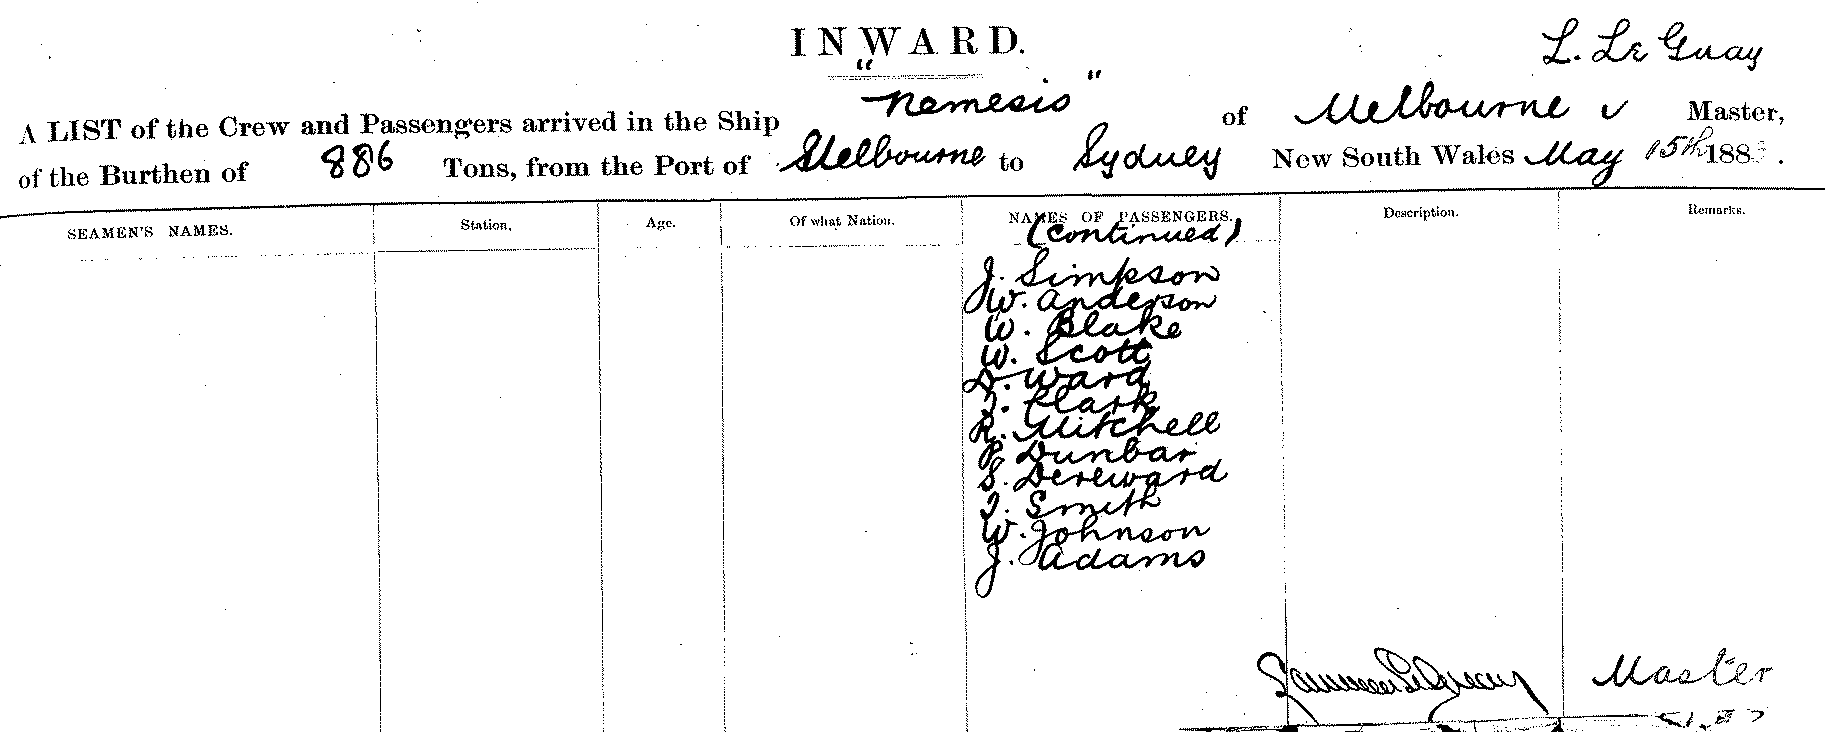 INWARD.
L. Le Guay
A LIST of the Crew and Passengers arrived in the Ship "Nemesis" of Melbourne Master,
of the Burthen of 886 Tons, from the Port of Melbourne to Sydney New South Wales May 15th 188 .
SEAMEN'S NAMES. Station. Age. Of what Nation. NAMES OF PASSENGERS. Description. Remarks.
(Continued)
J. Simpson
W. Anderson
W. Blake
W. Scott
D. Ward
Clark
R. Mitchell
P. Dunbar
S. Dereward
Smith
W. Johnson
J. Adams
Master